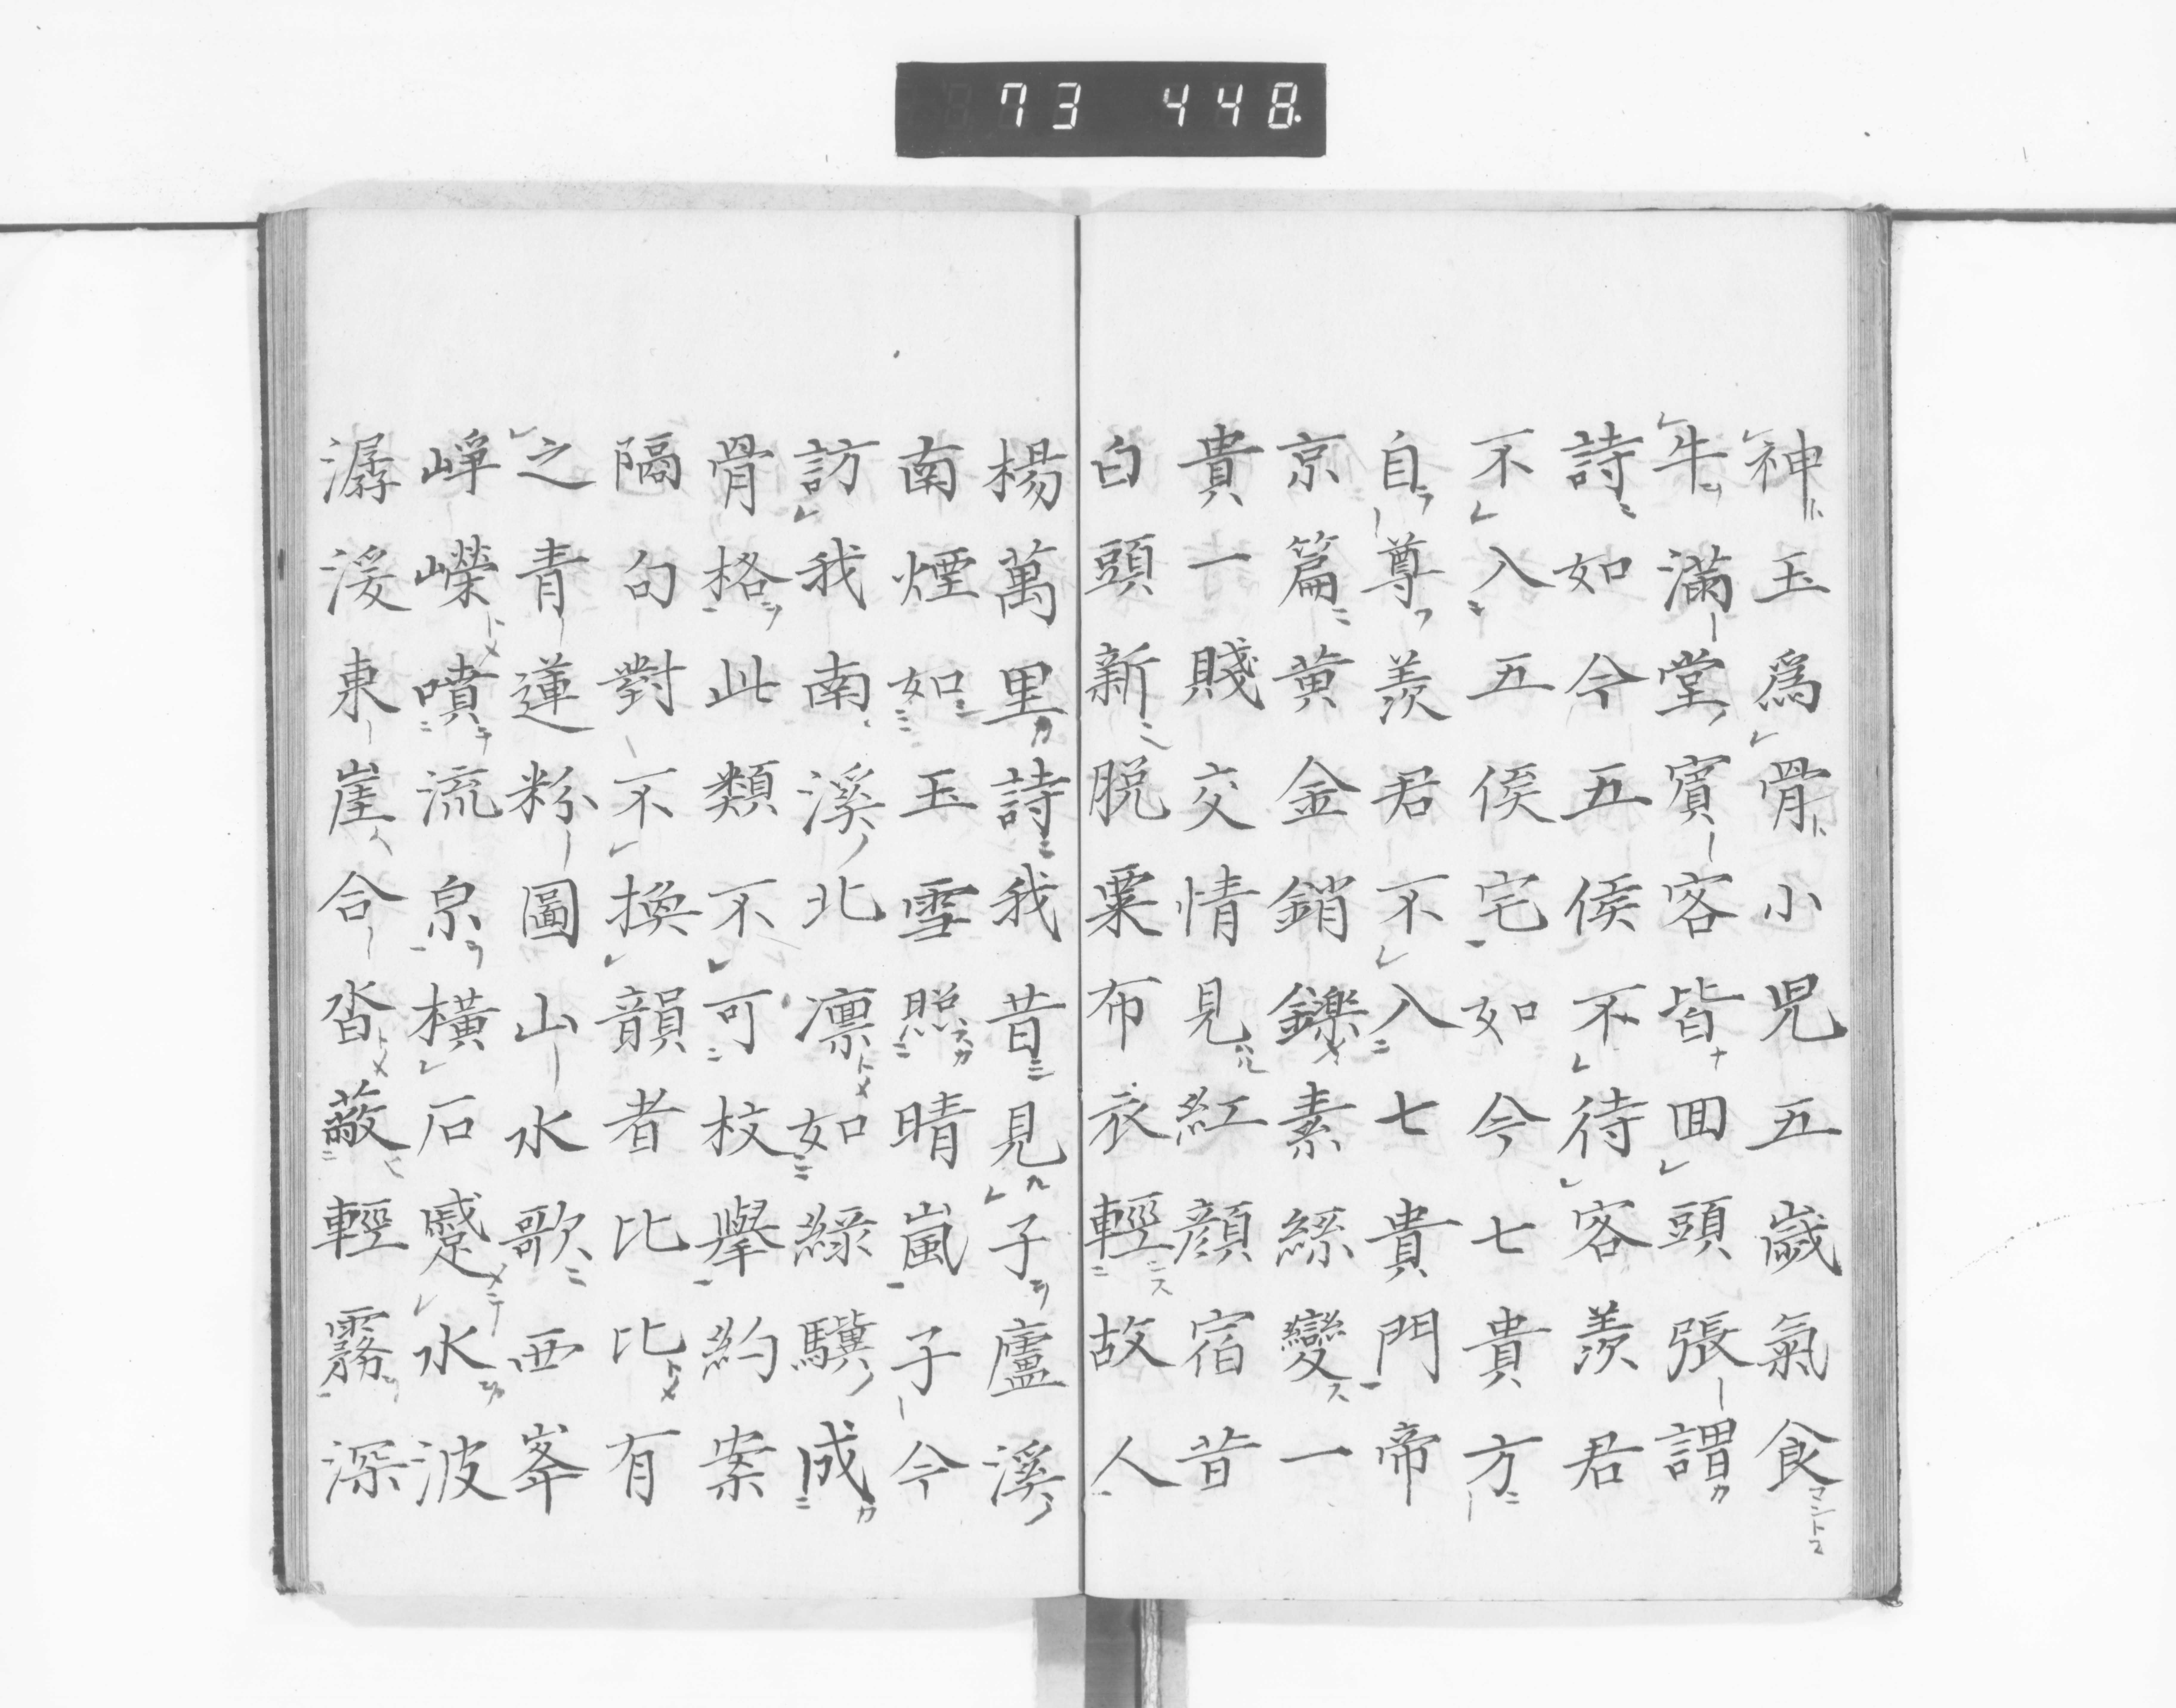 73 448.
神玉爲骨小児五歳氣食
牛滿堂賓客皆回頭張謂
詩如今五侯不待客羨君
不入五侯宅如今七貴方
自尊羨君不入七貴門帝
京篇黄金銷鑠素絲變一
貴一賤交情見紅顔宿昔
白頭新脱粟布衣輕故人
楊萬里詩我昔見子廬溪
南煙如玉雪照晴嵐子今
訪我南溪北凛如綠驥成
骨格此類不可枚舉約案
隔句對不換韻者比比有
之青蓮粉圖山水歌西峯
崢嶸噴流泉橫石蹙水波
潺湲東崖合沓蔽輕霧深